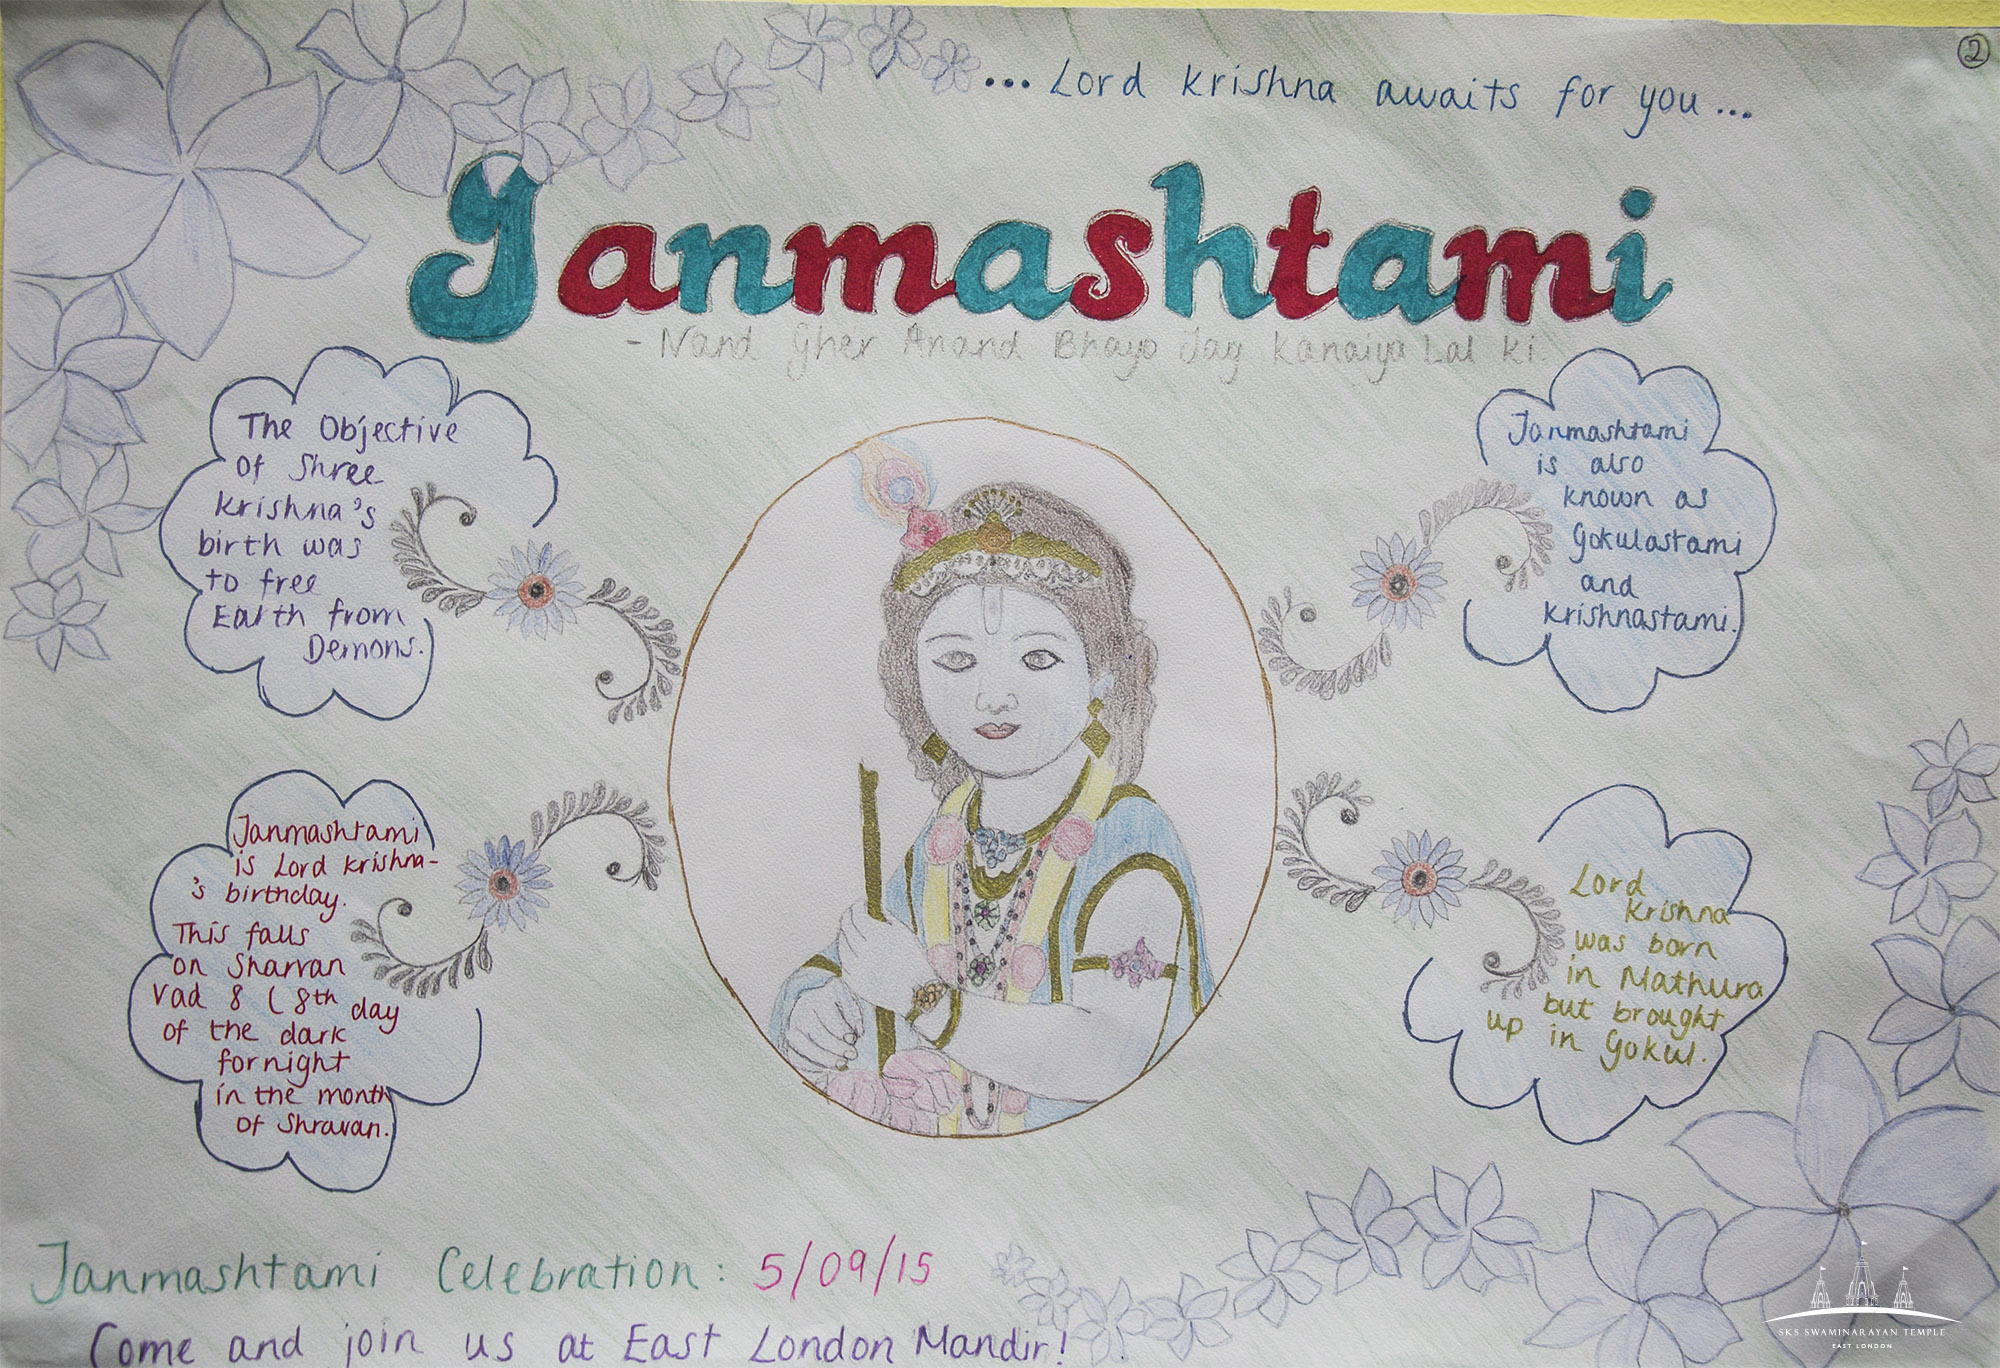 ②
...Lord Krishna awaits for you...
Janmashtami
- Nand Gher Anand Bhayo Jay Kanaiya Lal Ki.
The Objective
Of Shree
Krishna's
birth was
to free
Earth from
Demons.
Janmashtami
is also
known as
Gokulastami
and
Krishnastami.
Janmashtami
is Lord Krishna-
's birthday.
This falls
on Sharvan
Vad 8 (8th day
of the dark
fornight
in the month
of Shravan.
Lord
Krishna
was born
in Mathura
but brought
up in Gokul.
Janmashtami Celebration: 5/09/15
Come and join us at East London Mandir!
SKS SWAMINARAYAN TEMPLE
EAST LONDON